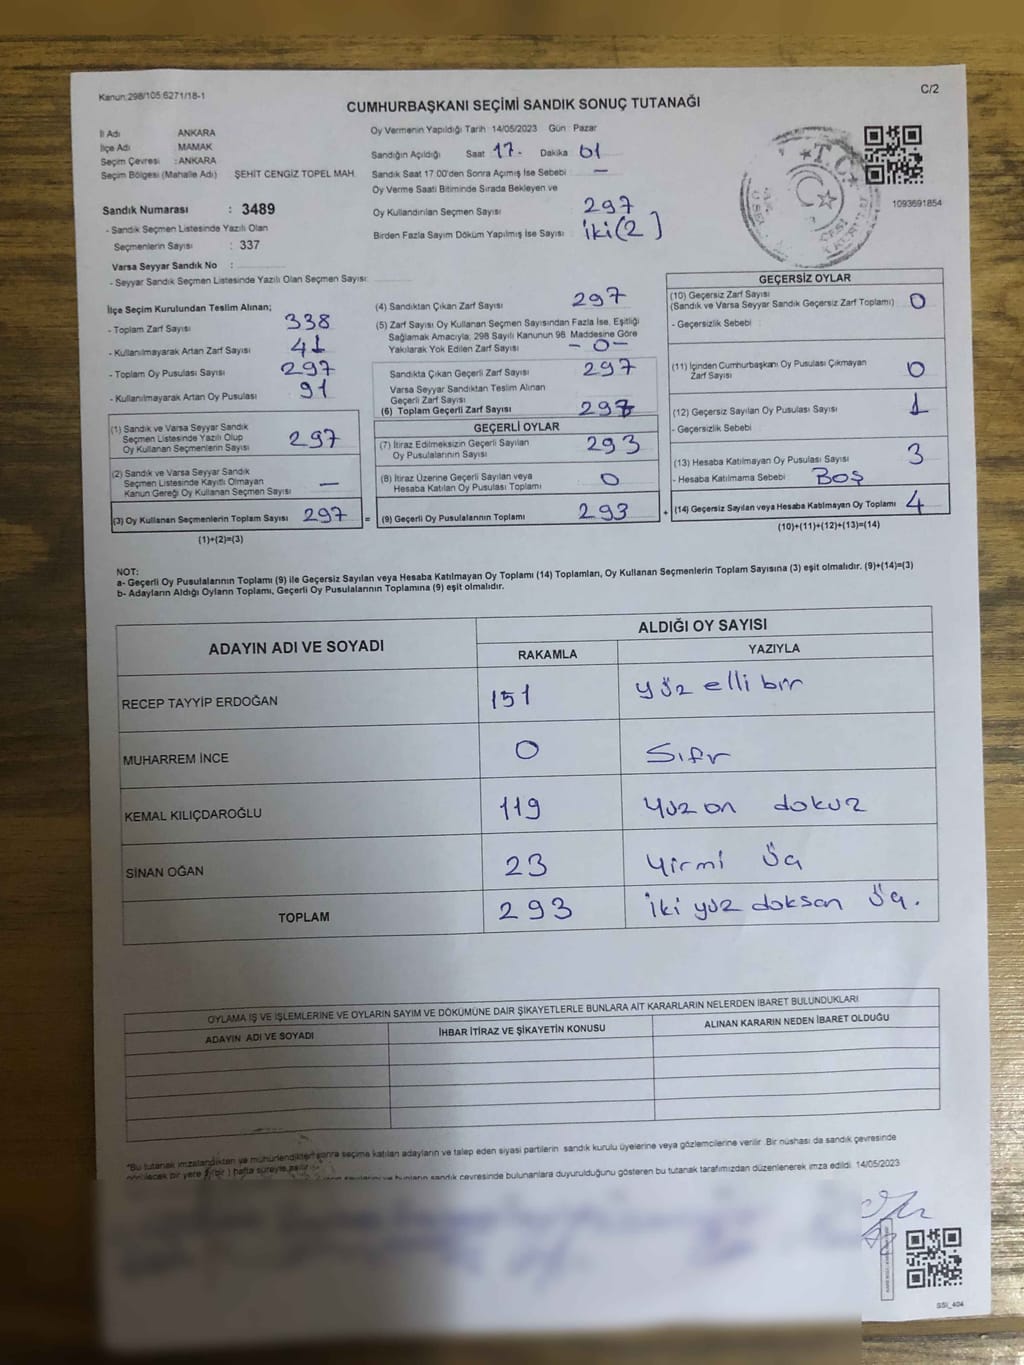 Kanun:298/105;6271/18-1
C/2
CUMHURBAŞKANI SEÇİMİ SANDIK SONUÇ TUTANAĞI
İl Adı ANKARA
İlçe Adı MAMAK
Seçim Çevresi : ANKARA
Seçim Bölgesi (Mahalle Adı) ŞEHİT CENGİZ TOPEL MAH.
Sandık Numarası : 3489
- Sandık Seçmen Listesinde Yazılı Olan
Seçmenlerin Sayısı : 337
Varsa Seyyar Sandık No :
- Seyyar Sandık Seçmen Listesinde Yazılı Olan Seçmen Sayısı:
Oy Vermenin Yapıldığı Tarih : 14/05/2023 Gün : Pazar
Sandığın Açıldığı Saat 17- Dakika 01
Sandık Saat 17.00'den Sonra Açımış İse Sebebi —
Oy Verme Saati Bitiminde Sırada Bekleyen ve
Oy Kullandırılan Seçmen Sayısı 297
Birden Fazla Sayım Döküm Yapılmış İse Sayısı iki(2)
T.C.
1093691854
İlçe Seçim Kurulundan Teslim Alınan;
- Toplam Zarf Sayısı 338
- Kullanılmayarak Artan Zarf Sayısı 41
- Toplam Oy Pusulası Sayısı 297
- Kullanılmayarak Artan Oy Pusulası 91
(1) Sandık ve Varsa Seyyar Sandık
Seçmen Listesinde Yazılı Olup
Oy Kullanan Seçmenlerin Sayısı 297
(2) Sandık ve Varsa Seyyar Sandık
Seçmen Listesinde Kayıtlı Olmayan
Kanun Gereği Oy Kullanan Seçmen Sayısı —
(3) Oy Kullanan Seçmenlerin Toplam Sayısı 297
(1)+(2)=(3)
(4) Sandıktan Çıkan Zarf Sayısı 297
(5) Zarf Sayısı Oy Kullanan Seçmen Sayısından Fazla İse, Eşitliği
Sağlamak Amacıyla, 298 Sayılı Kanunun 98. Maddesine Göre
Yakılarak Yok Edilen Zarf Sayısı - 0 -
Sandıkta Çıkan Geçerli Zarf Sayısı 297
Varsa Seyyar Sandıktan Teslim Alınan
Geçerli Zarf Sayısı
(6) Toplam Geçerli Zarf Sayısı 297
GEÇERLİ OYLAR
(7) İtiraz Edilmeksizin Geçerli Sayılan
Oy Pusulalarının Sayısı 293
(8) İtiraz Üzerine Geçerli Sayılan veya
Hesaba Katılan Oy Pusulası Toplamı 0
= (9) Geçerli Oy Pusulalarının Toplamı 293
GEÇERSİZ OYLAR
(10) Geçersiz Zarf Sayısı
(Sandık ve Varsa Seyyar Sandık Geçersiz Zarf Toplamı) 0
- Geçersizlik Sebebi
(11) İçinden Cumhurbaşkanı Oy Pusulası Çıkmayan
Zarf Sayısı 0
(12) Geçersiz Sayılan Oy Pusulası Sayısı 1
- Geçersizlik Sebebi
(13) Hesaba Katılmayan Oy Pusulası Sayısı 3
- Hesaba Katılmama Sebebi BOŞ
+ (14) Geçersiz Sayılan veya Hesaba Katılmayan Oy Toplamı 4
(10)+(11)+(12)+(13)=(14)
NOT:
a- Geçerli Oy Pusulalarının Toplamı (9) ile Geçersiz Sayılan veya Hesaba Katılmayan Oy Toplamı (14) Toplamları, Oy Kullanan Seçmenlerin Toplam Sayısına (3) eşit olmalıdır. (9)+(14)=(3)
b- Adayların Aldığı Oyların Toplamı, Geçerli Oy Pusulalarının Toplamına (9) eşit olmalıdır.
ADAYIN ADI VE SOYADI ALDIĞI OY SAYISI
RAKAMLA YAZIYLA
RECEP TAYYİP ERDOĞAN 151 yüz elli bir
MUHARREM İNCE 0 Sıfır
KEMAL KILIÇDAROĞLU 119 Yüz on dokuz
SİNAN OĞAN 23 Yirmi üç
TOPLAM 293 iki yüz doksan üç.
OYLAMA İŞ VE İŞLEMLERİNE VE OYLARIN SAYIM VE DÖKÜMÜNE DAİR ŞİKAYETLERLE BUNLARA AİT KARARLARIN NELERDEN İBARET BULUNDUKLARI
ADAYIN ADI VE SOYADI İHBAR İTİRAZ VE ŞİKAYETİN KONUSU ALINAN KARARIN NEDEN İBARET OLDUĞU
*Bu tutanak imzalandıktan ve mühürlendikten sonra seçime katılan adayların ve talep eden siyasi partilerin sandık kurulu üyelerine veya gözlemcilerine verilir. Bir nüshası da sandık çevresinde
bir yere (bir) hafta süreyle asılır.
sandık çevresinde bulunanlara duyurulduğunu gösteren bu tutanak tarafımızdan düzenlenerek imza edildi. 14/05/2023
SSI_404